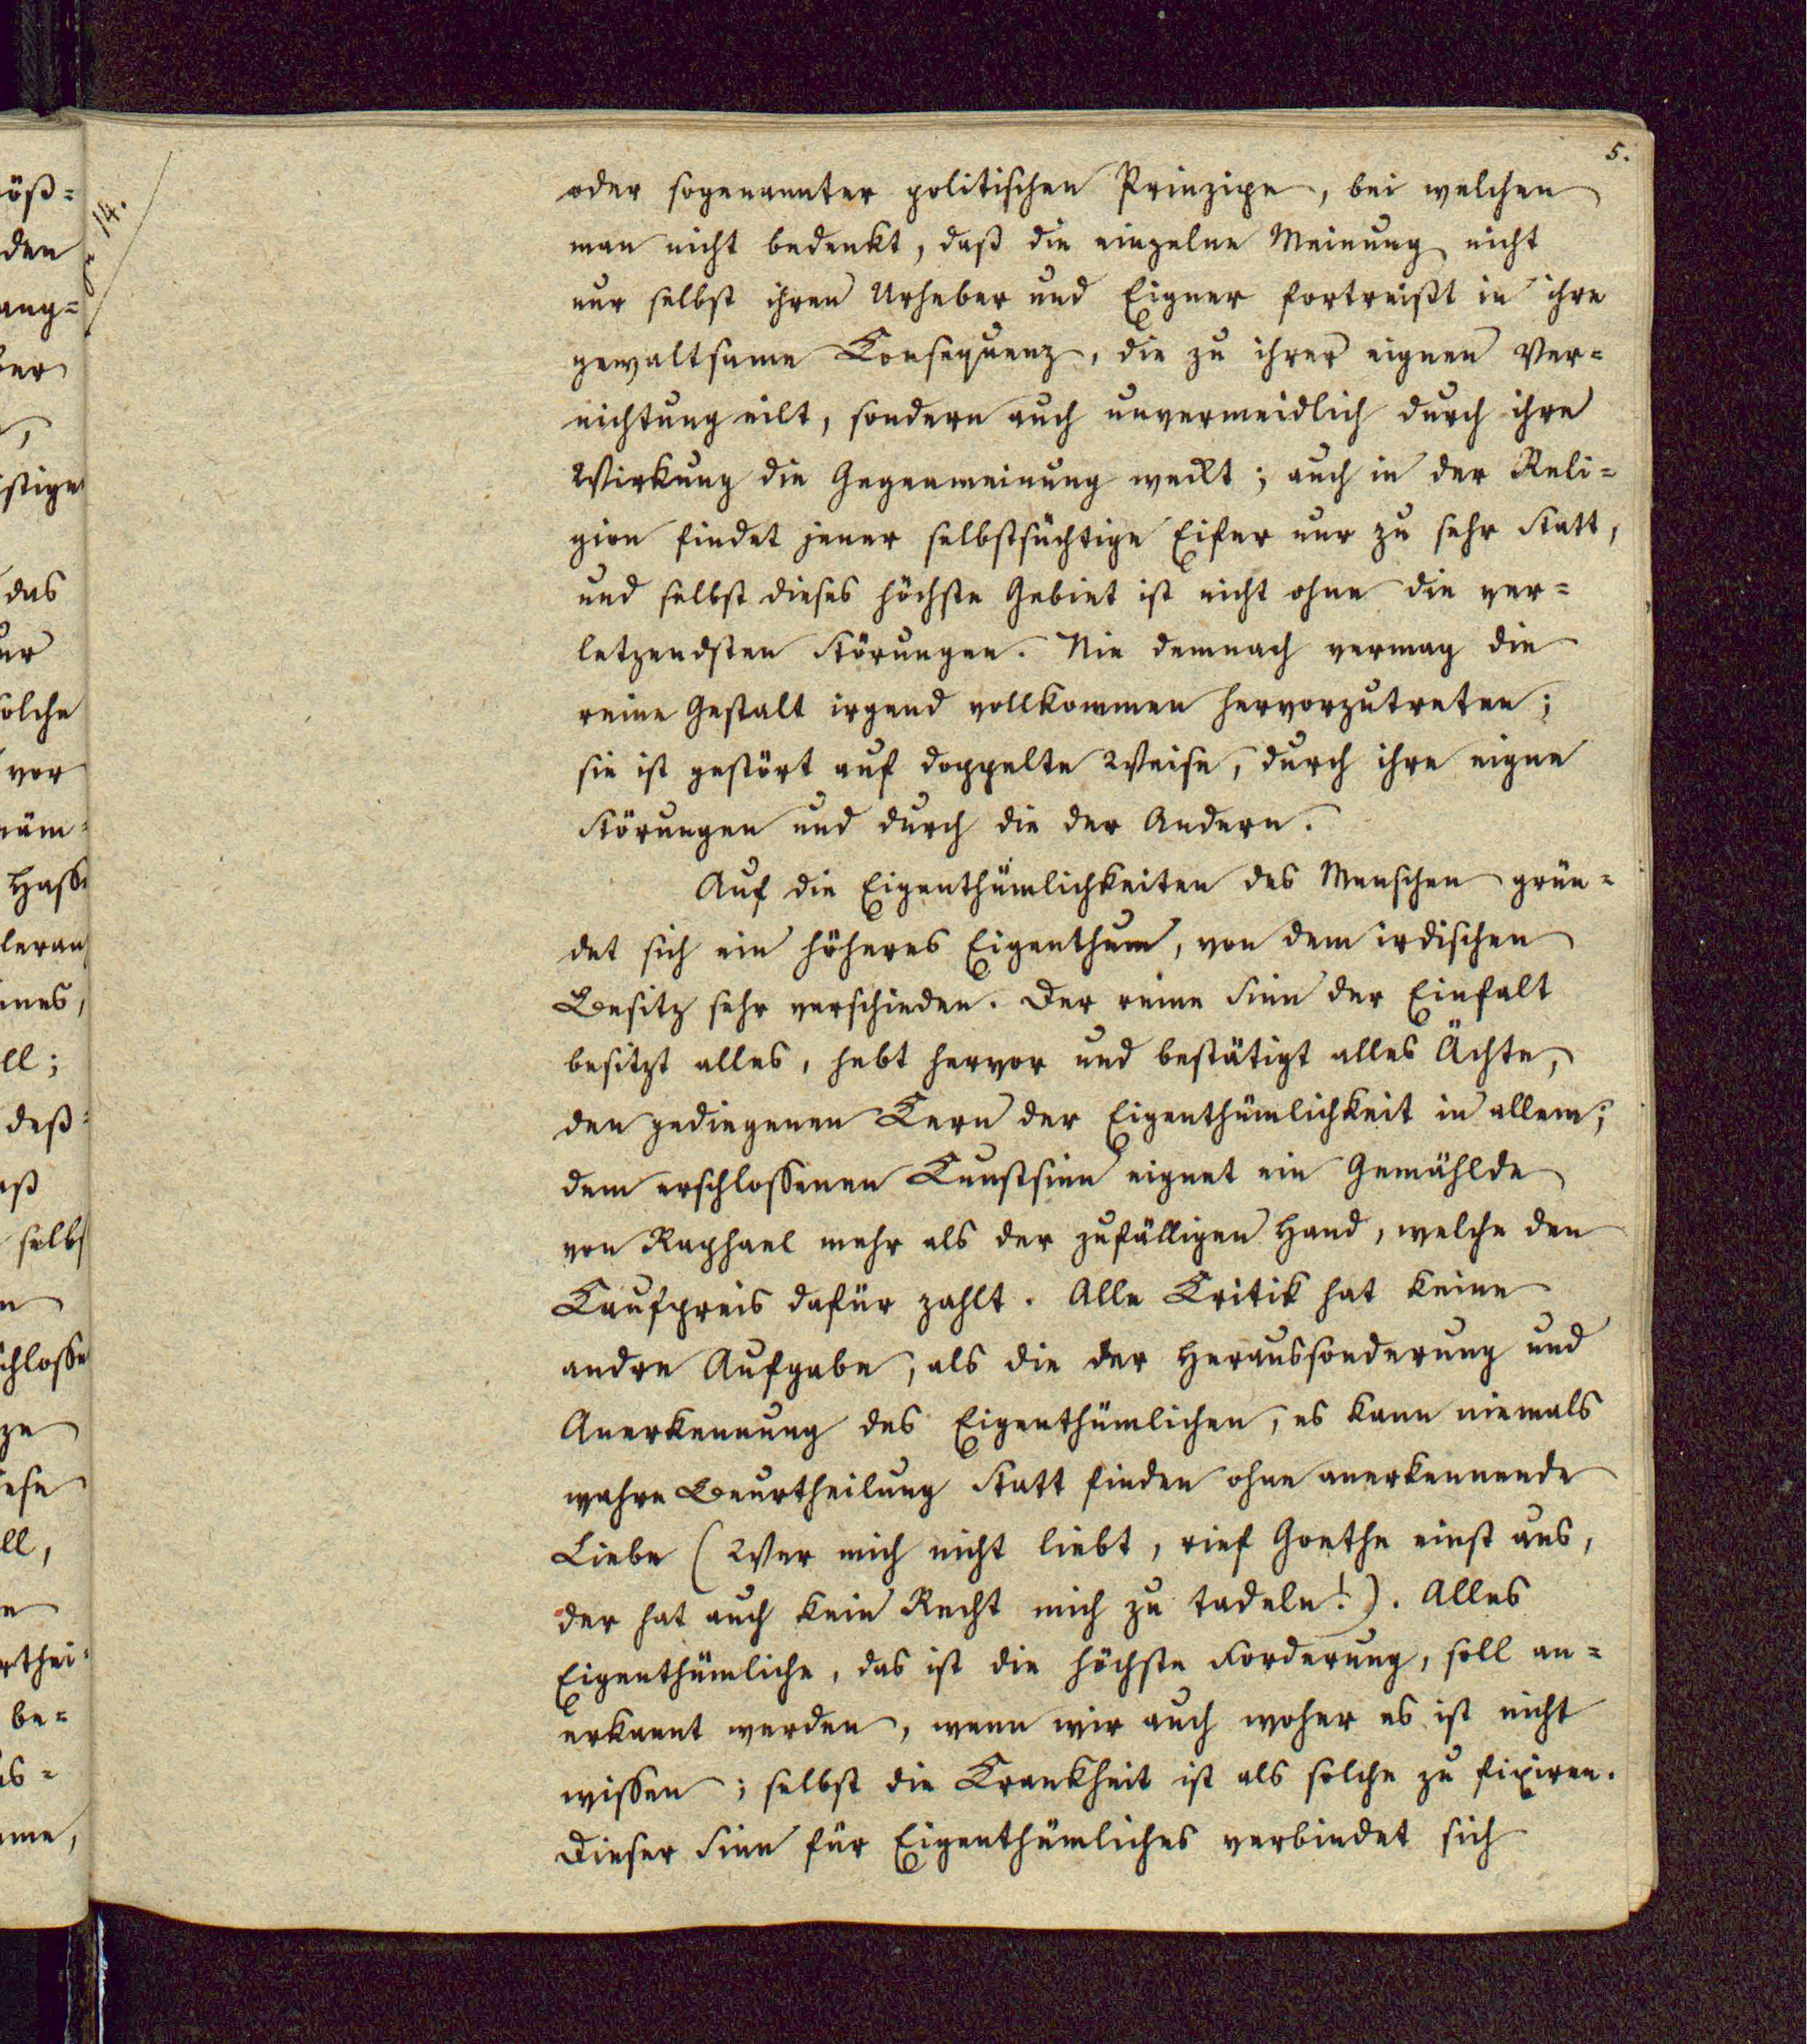 5.
14.
oder sogenannter politischen Prinzipe, bei welchen
man nicht bedenkt, daß die einzelne Meinung nicht
nur selbst ihren Urheber und Eigner fortreißt in ihre
gewaltsame Consequenz, die zu ihrer eignen Ver=
nichtung eilt, sondern auch unvermeidlich durch ihre
Wirkung die Gegenmeinung weckt; auch in der Reli=
gion findet jener selbstsüchtige Eifer nur zu sehr Statt,
und selbst dieses höchste Gebiet ist nicht ohne die ver=
letzendsten Störungen. Nie demnach vermag die
reine Gestalt irgend vollkommen hervorzutreten;
sie ist gestört auf doppelte Weise, durch ihre eigne
Störungen und durch die der Andern.
Auf die Eigenthümlichkeiten des Menschen grün=
det sich ein höheres Eigenthum, von dem irdischen
Besitz sehr verschieden. Der reine Sinn der Einfalt
besitzt alles, hebt hervor und bestätigt alles Ächte,
den gediegenen Kern der Eigenthümlichkeit in allem;
dem erschlossenen Kunstsinn eignet ein Gemählde
von Raphael mehr als der zufälligen Hand, welche den
Kaufpreis dafür zahlt. Alle Kritik hat keine
andre Aufgabe, als die der Heraussonderung und
Anerkennung des Eigenthümlichen, es kann niemals
wahre Beurtheilung Statt finden ohne anerkennende
Liebe (Wer mich nicht liebt, rief Goethe einst aus,
der hat auch kein Recht mich zu tadeln!). Alles
Eigenthümliche, das ist die höchste Forderung, soll an=
erkannt werden, wenn wir auch woher es ist nicht
wissen; selbst die Krankheit ist als solche zu fixiren.
Dieser Sinn für Eigenthümliches verbindet sich